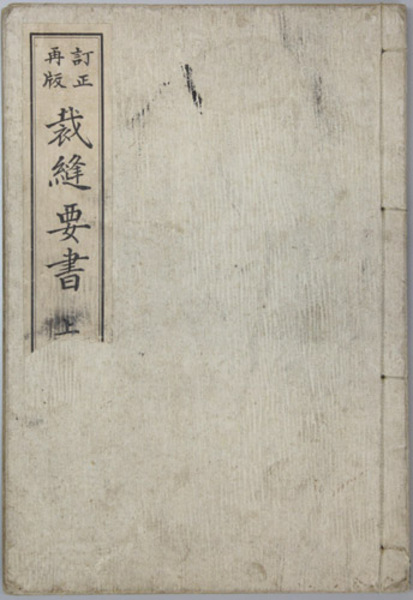 訂正
再版
裁縫要書
上